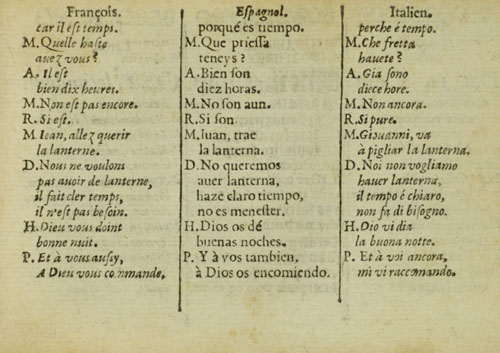 François.
car il est temps.
M. Quelle haste
auez vous?
A. Il est
bien dix heures.
M. Non est pas encore.
R. Si est.
M. Iean, allez querir
la lanterne.
D. Nous ne voulons
pas auoir de lanterne,
il fait cler temps,
il n'est pas besoin.
H. Dieu vous doint
bonne nuit.
P. Et à vous aussy,
A Dieu vous commande.
Espagnol.
porquè es tiempo.
M. Que priessa
teneys?
A. Bien son
diez horas.
M. No son aun.
R. Si son.
M. Iuan, trae
la lanterna.
D. No queremos
auer lanterna,
haze claro tiempo,
no es menester.
H. Dios os dé
buenas noches.
P. Y à vos tambien,
à Dios os encomiendo.
Italien.
perche é tempo.
M. Che fretta
hauete?
A. Gia sono
diece hore.
M. Non ancora.
R. Si pure.
M. Giouanni, va
à pigliar la lanterna.
D. Noi non vogliamo
hauer lanterna,
il tempo é chiaro,
non fa di bisogno.
H. Dio vi dia
la buona notte.
P. Et à voi ancora,
mi vi raccomando.